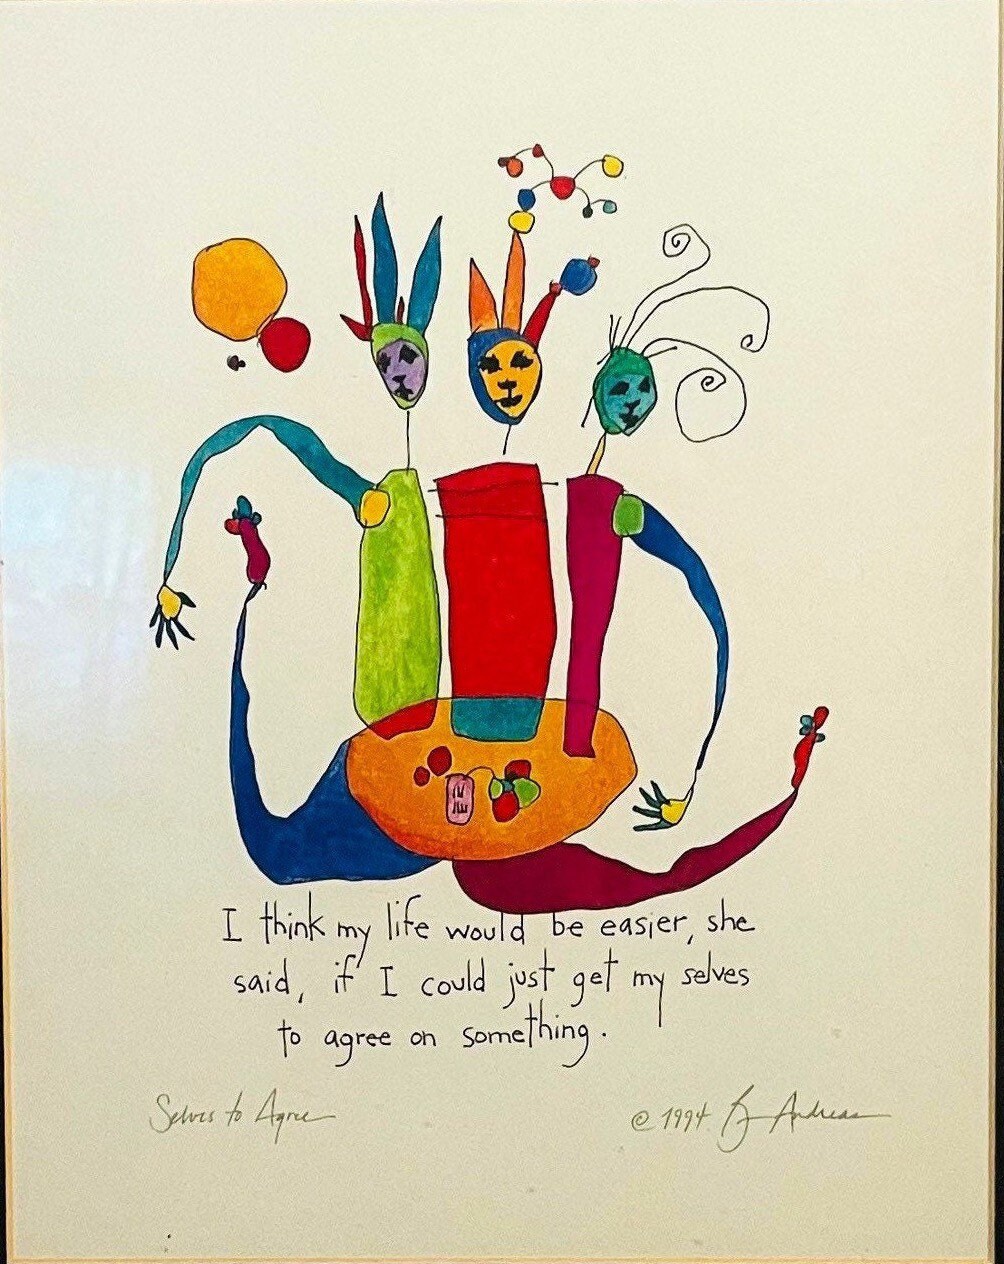 I think my life would be easier, she
said, if I could just get my selves
to agree on something.
Selves to Agree
© 1994. Andreas